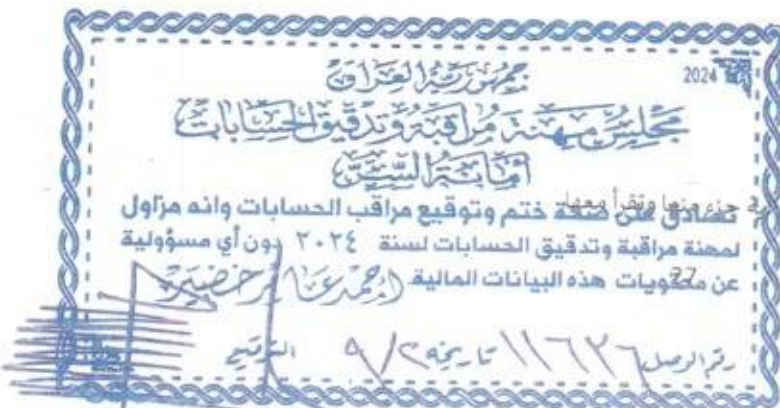 2024
جمهورية العراق
مجلس مهنة مراقبة وتدقيق الحسابات
أمانة السر
جزء منها وتقرأ معها
نصادق على صحة ختم وتوقيع مراقب الحسابات وانه مزاول
لمهنة مراقبة وتدقيق الحسابات لسنة ٢٠٢٤ دون أي مسؤولية
عن محتويات هذه البيانات المالية (احمد عامر خضير)
27
رقم الوصل ١١٦٢٦ تاريخه ٩/٢ التوقيع